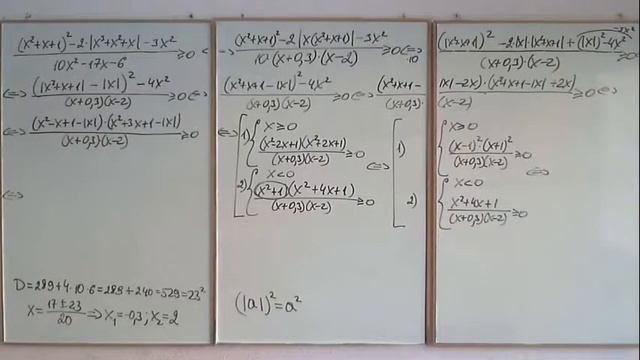 (x²+x+1)²-2·|x³+x²+x|-3x² / 10x²-17x-6 ≥0 <
⇔ (|x²+x+1|-|x|)²-4x² / (x+0,3)(x-2) ≥0 ⇔
⇔ (x²-x+1-|x|)·(x²+3x+1-|x|) / (x+0,3)(x-2) ≥0
⇔
D=289+4·10·6=289+240=529=23²
x= 17±23 / 20 ⇒ x₁=-0,3; x₂=2
(x²+x+1)²-2|x(x²+x+1)|-3x² / 10·(x+0,3)·(x-2) ≥0 ⇔ ·10
(x²+x+1-|x|)²-4x² / (x+0,3)(x-2) ≥0 ⇔ (x²+x+1- / (x+0,3)·
⇔ 1) x≥0
(x²-2x+1)(x²+2x+1) / (x+0,3)(x-2) ≥0 ⇔ 1)
2) x<0
(x²+1)(x²+4x+1) / (x+0,3)(x-2) ≥0 2)
(|a|)²=a²
(|x²+x+1|)²-2·|x|·|x²+x+1|+(|x|)²-4x² / (x+0,3)(x-2) -3x²
|x|-2x)·(x²+x+1-|x|+2x) / (x-2) ≥0 ⇔
x≥0
(x-1)²·(x+1)² / (x+0,3)(x-2) ≥0
⇔
x<0
x²+4x+1 / (x+0,3)(x-2) ≥0